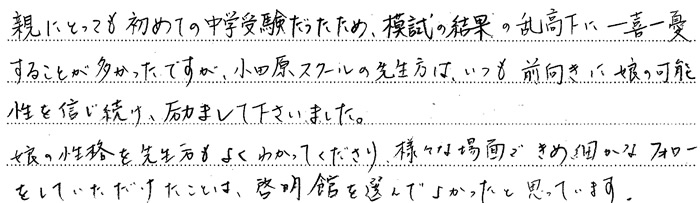 親にとっても初めての中学受験だったため、模試の結果の乱高下に一喜一憂
することが多かったですが、小田原スクールの先生方は、いつも前向きに娘の可能
性を信じ続け、励まして下さいました。
娘の性格を先生方もよくわかってくださり、様々な場面できめ細かなフォロー
をしていただけたことは、啓明館を選んでよかったと思っています。